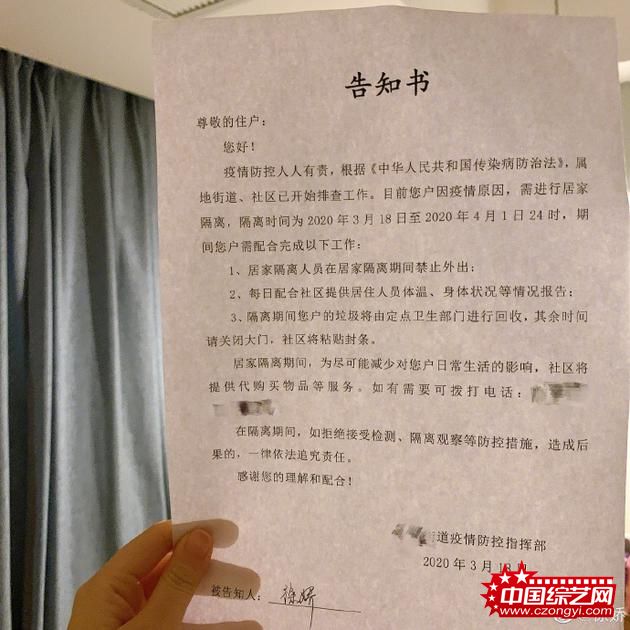 告知书
尊敬的住户：
您好！
疫情防控人人有责，根据《中华人民共和国传染病防治法》，属
地街道、社区已开始排查工作。目前您户因疫情原因，需进行居家
隔离，隔离时间为 2020 年 3 月 18 日至 2020 年 4 月 1 日 24 时，期
间您户需配合完成以下工作：
1、居家隔离人员在居家隔离期间禁止外出；
2、每日配合社区提供居住人员体温、身体状况等情况报告；
3、隔离期间您户的垃圾将由定点卫生部门进行回收，其余时间
请关闭大门，社区将粘贴封条。
居家隔离期间，为尽可能减少对您户日常生活的影响，社区将
提供代购买物品等服务。如有需要可拨打电话：
在隔离期间，如拒绝接受检测、隔离观察等防控措施，造成后
果的，一律依法追究责任。
感谢您的理解和配合！
街道疫情防控指挥部
2020 年 3 月 18 日
被告知人：徐娇
中国综艺网
www.czongyi.com